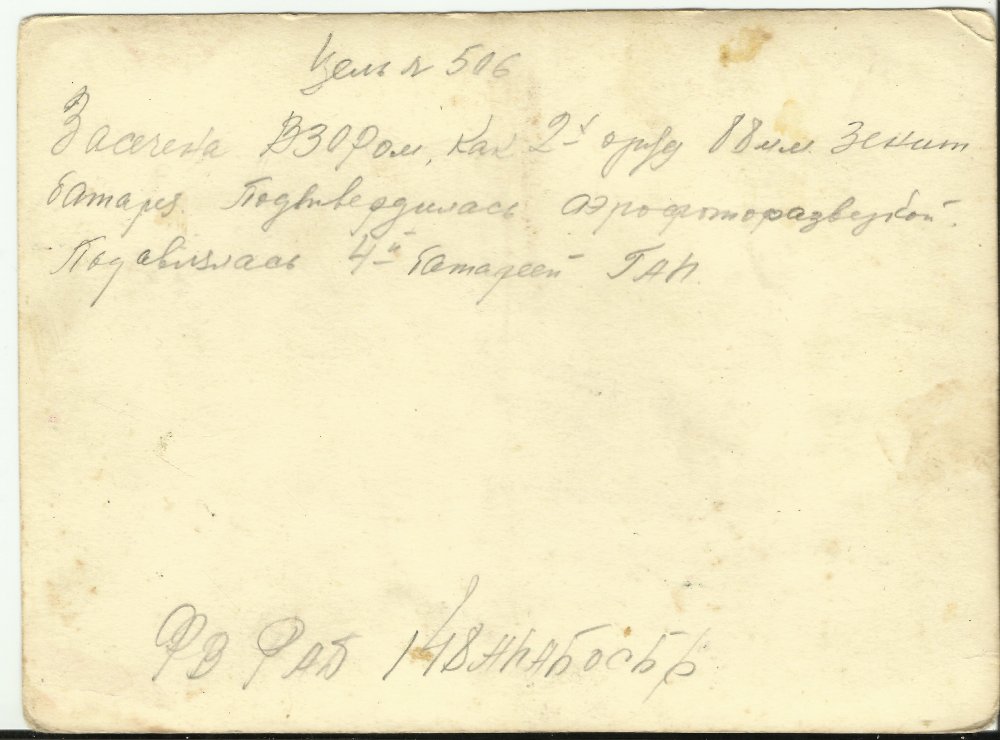 Цель № 506
Засечена ВЗОРом, как 2-х оруд 88 мм. зенит
батарея. Подтвердилась аэрофоторазведкой.
Подавлялась 4-й батареей ГАП.
ФВ РАБ 148